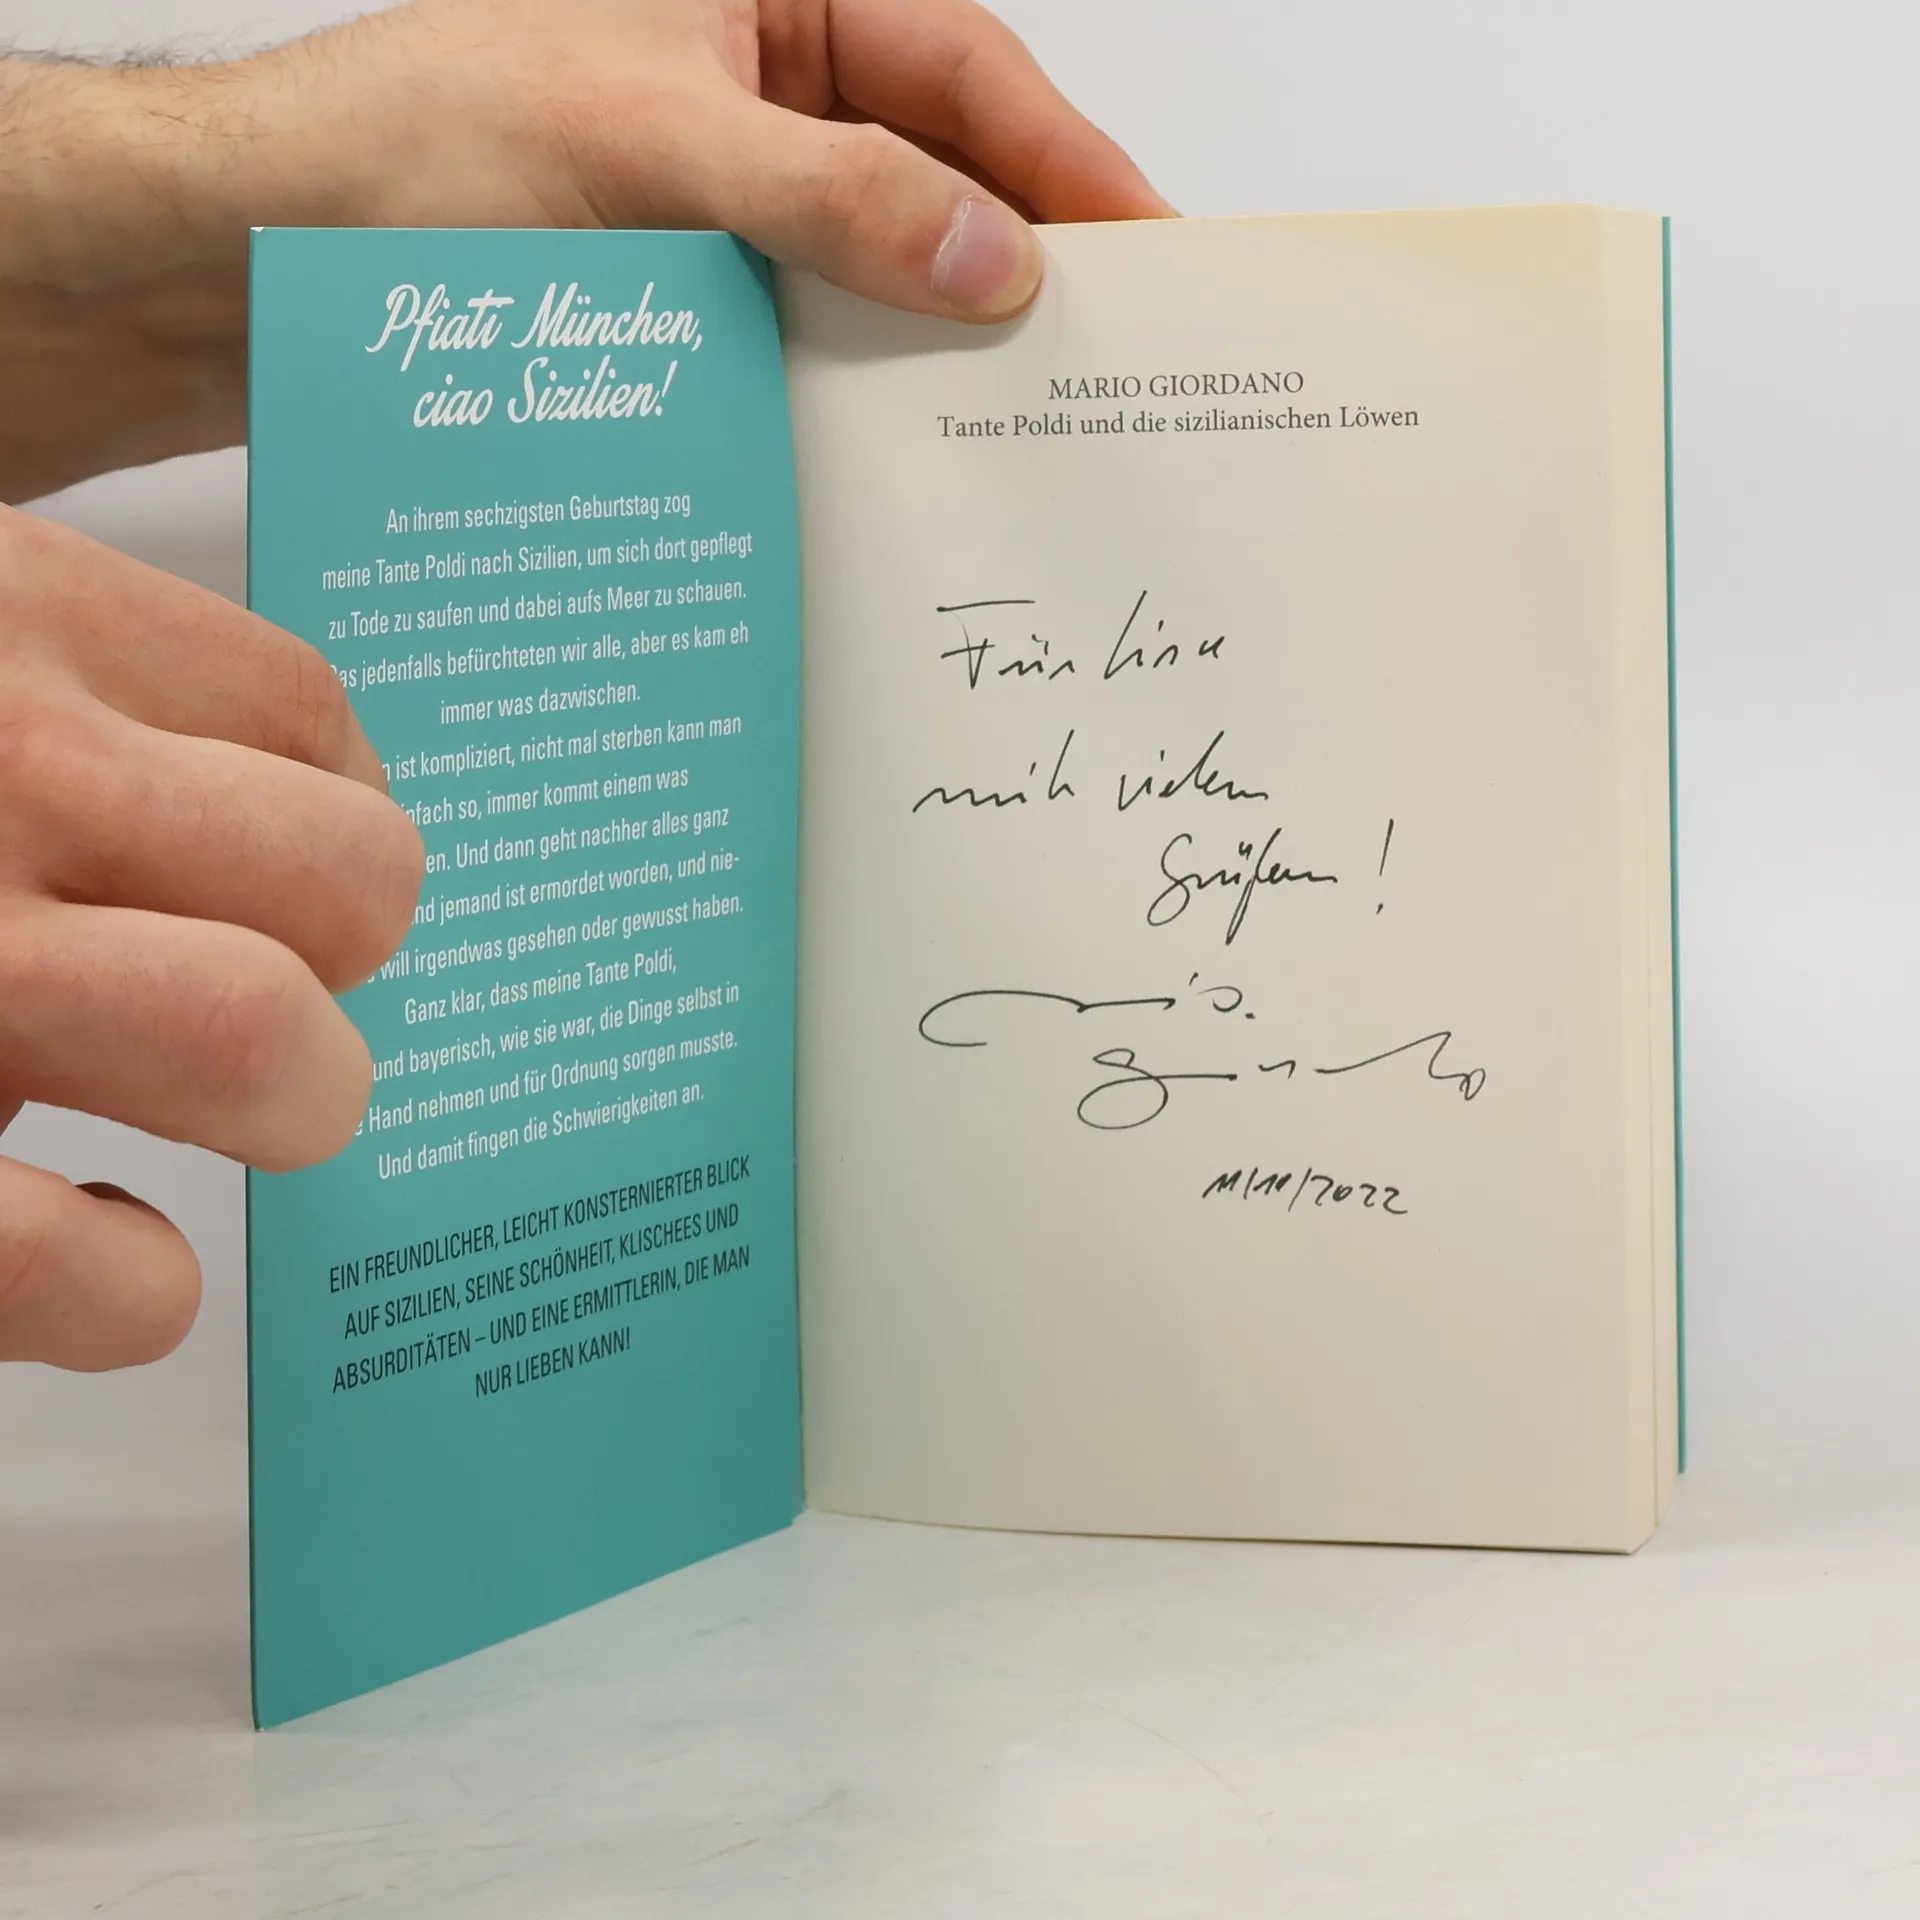 Pfiati München,
ciao Sizilien!
An ihrem sechzigsten Geburtstag zog
meine Tante Poldi nach Sizilien, um sich dort gepflegt
zu Tode zu saufen und dabei aufs Meer zu schauen.
as jedenfalls befürchteten wir alle, aber es kam eh
immer was dazwischen.
n ist kompliziert, nicht mal sterben kann man
nfach so, immer kommt einem was
en. Und dann geht nachher alles ganz
nd jemand ist ermordet worden, und nie-
will irgendwas gesehen oder gewusst haben.
Ganz klar, dass meine Tante Poldi,
und bayerisch, wie sie war, die Dinge selbst in
Hand nehmen und für Ordnung sorgen musste.
Und damit fingen die Schwierigkeiten an.
EIN FREUNDLICHER, LEICHT KONSTERNIERTER BLICK
AUF SIZILIEN, SEINE SCHÖNHEIT, KLISCHEES UND
ABSURDITÄTEN – UND EINE ERMITTLERIN, DIE MAN
NUR LIEBEN KANN!
MARIO GIORDANO
Tante Poldi und die sizilianischen Löwen
Für Lina
mit vielen
Grüßen!
11/10/2022